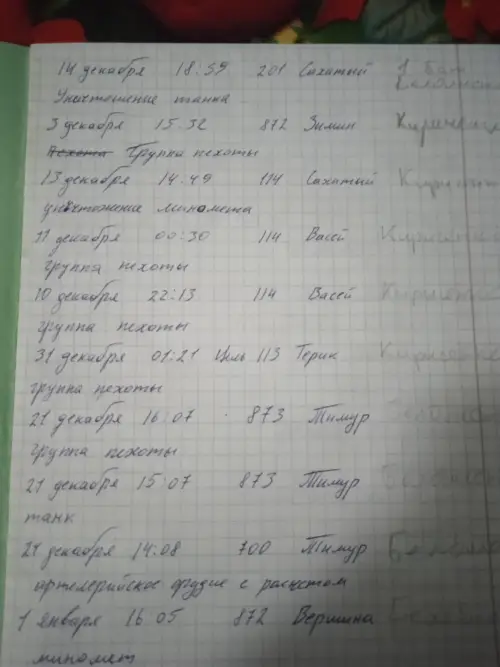 14 декабря 18:39 201 Сохатый 1 Бат
Уничтошение танка
3 декабря 15:32 872 Зимин
Пехота Групка пехоты
13 декабря 14:49 114 Сохатый
уничтожение миномета
11 декабря 00:30 114 Васей
группа пехоты
10 декабря 22:13 114 Васей
группа пехоты
31 декабря 01:21 Цель 113 Терик
группа пехоты
21 декабря 16:07 873 Тимур
группа пехоты
21 декабря 15:07 873 Тимур
танк
21 декабря 14:08 700 Тимур
артелерийское орудие с расчетом
1 января 16 05 872 Вершина
миномет